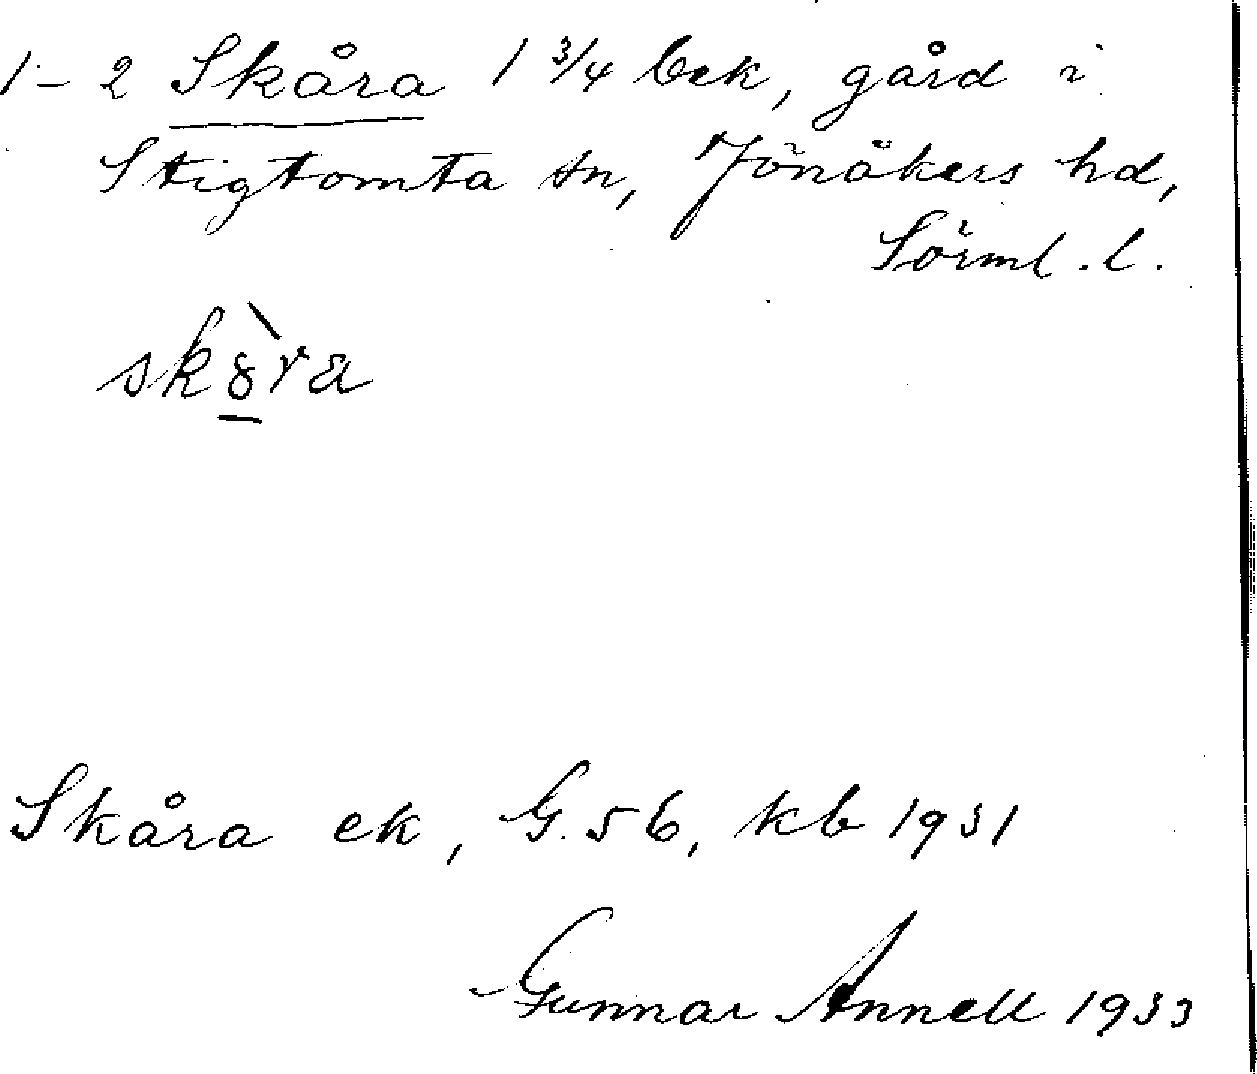 1-2 Skåra 1 3/4 bek, gård i
Stigtomta sn, Jönåkers hd,
Sörml. l.
skòra
Skåra ek, G. 56, kb 1931
Gunnar Annell 1933